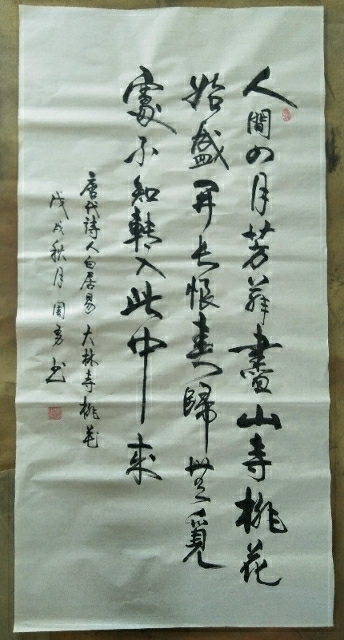 人間四月芳菲盡山寺桃花
始盛開長恨春歸無覓
處不知轉入此中來
唐代詩人白居易大林寺桃花
戊戌秋月周秀书